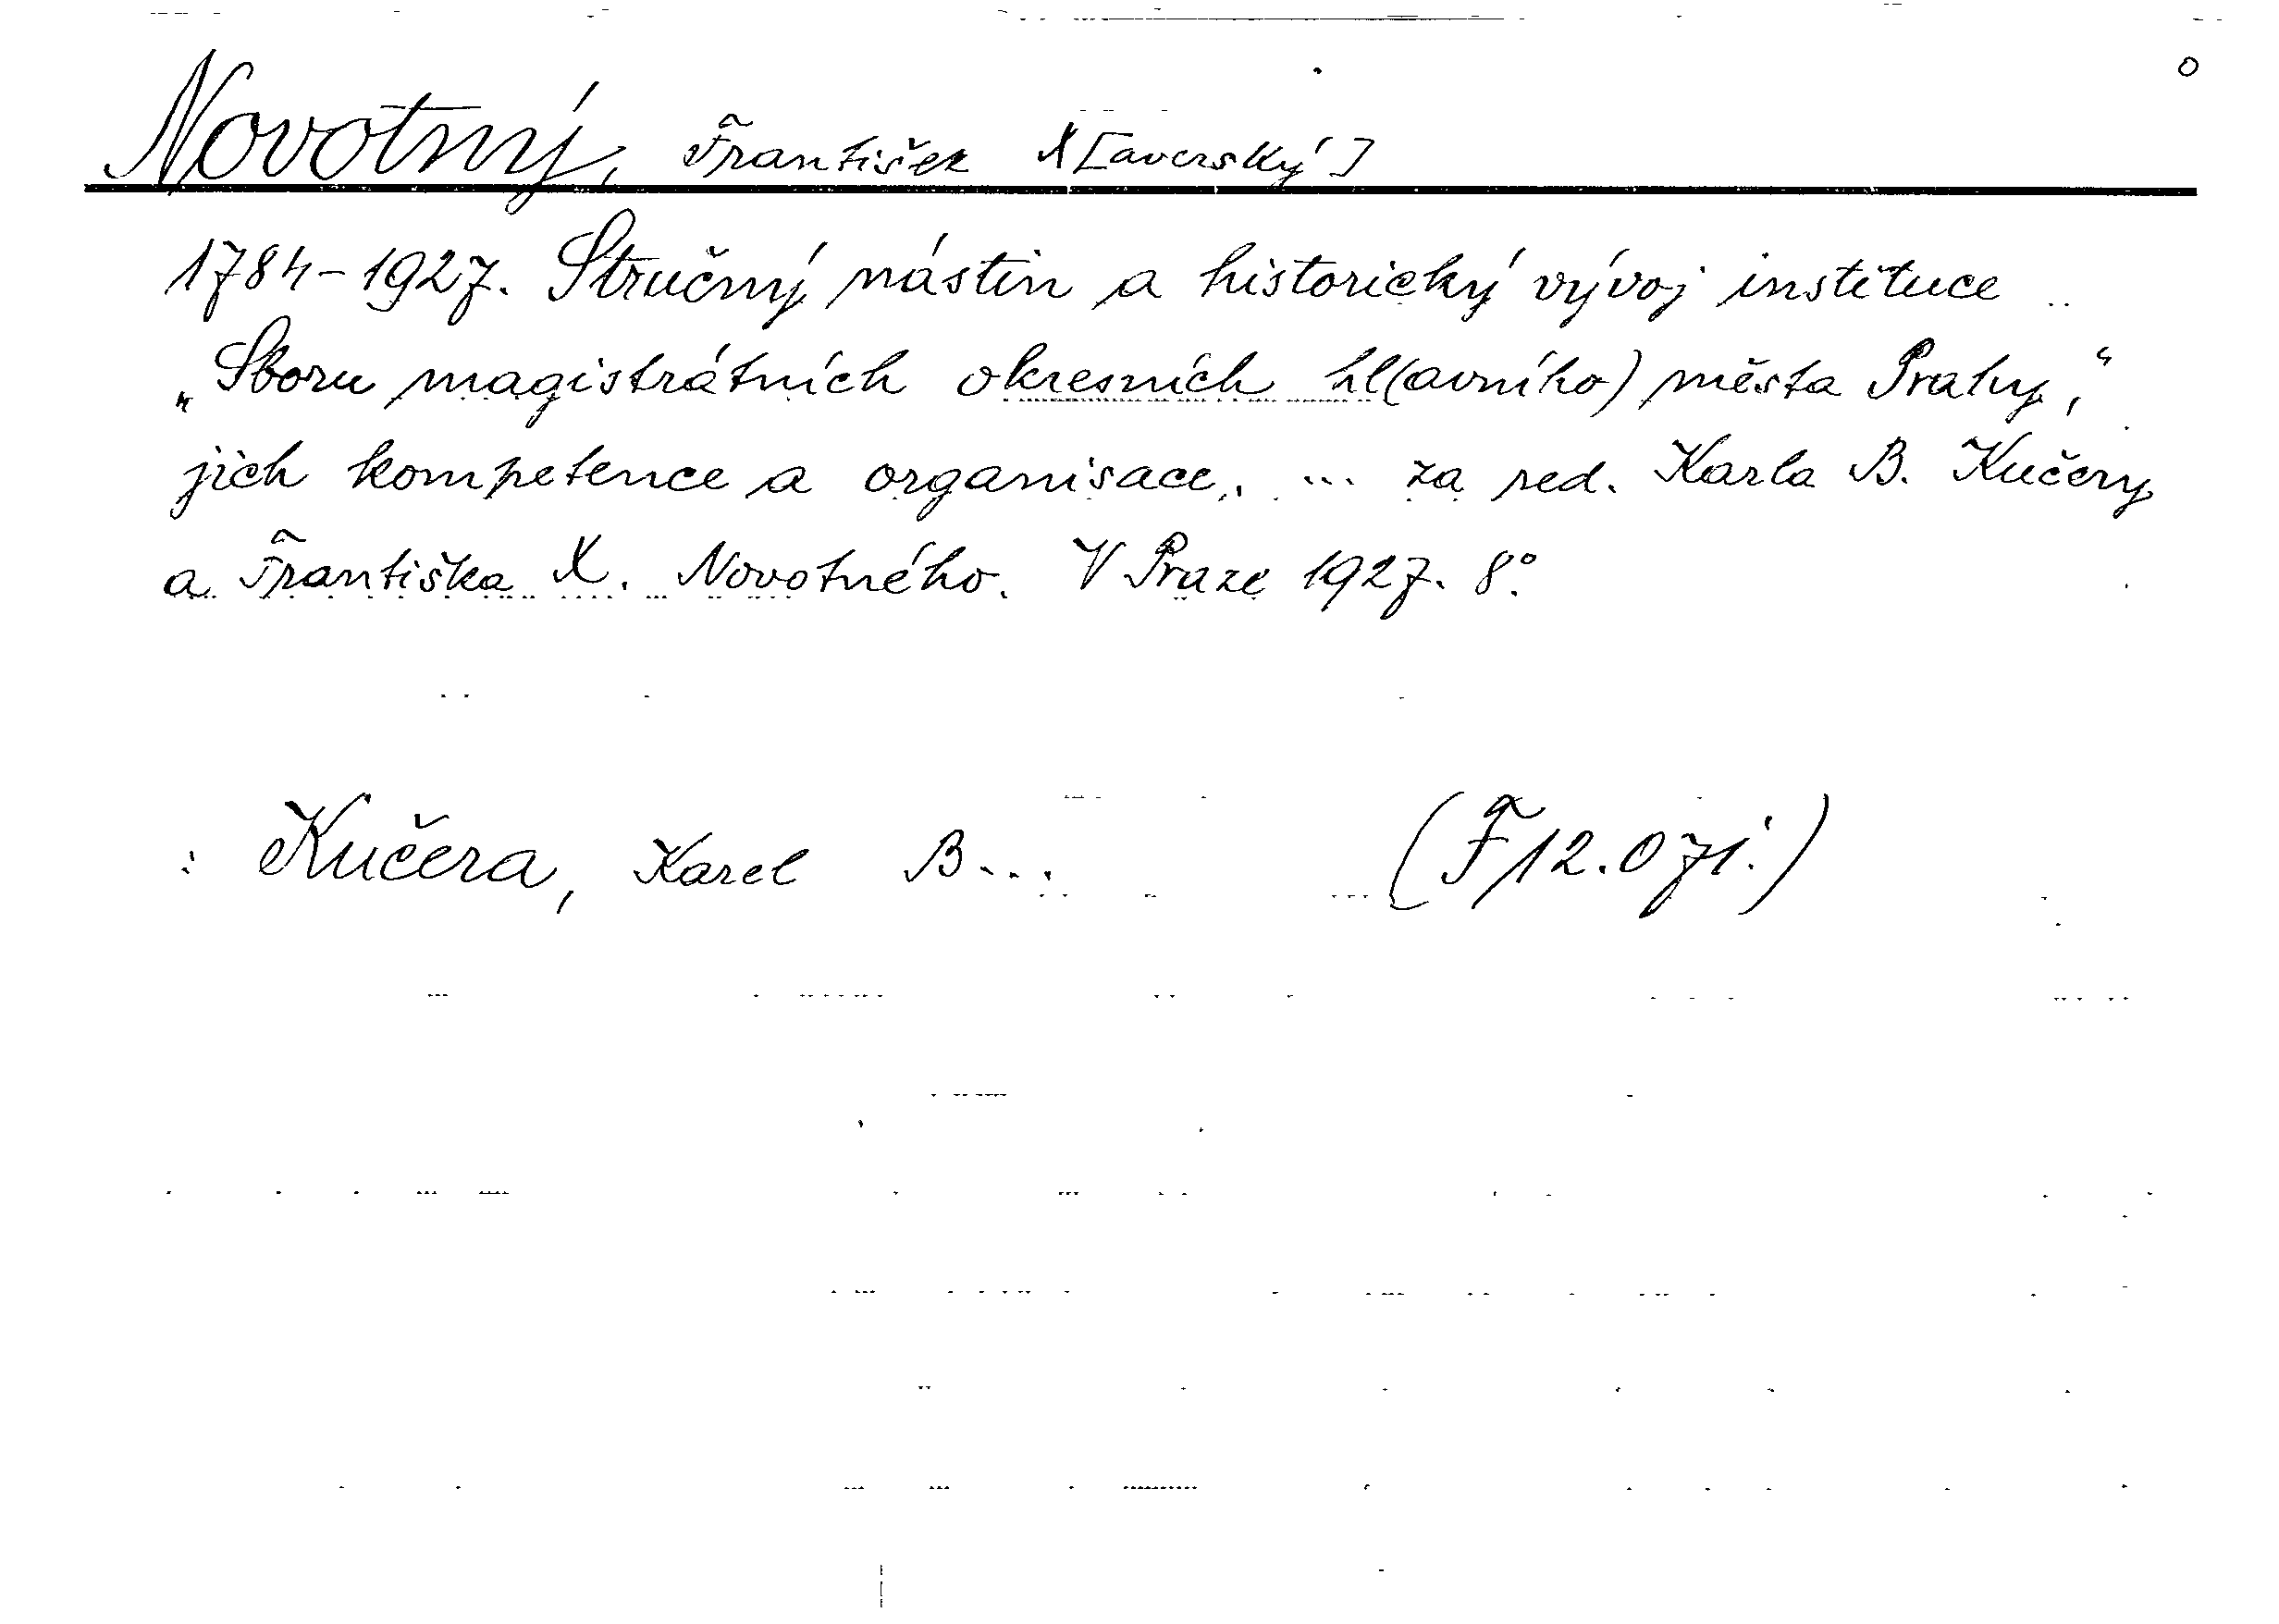 Novotný, František X[averský]
1784-1927. Stručný nástin a historický vývoj instituce
„Sboru magistrátních okresních hl(avního) města Prahy,“
jich kompetence a organisace, ... za red. Karla B. Kučery
a Františka X. Novotného. V Praze 1927. 8°.
: Kučera, Karel B... (F 12.071.)